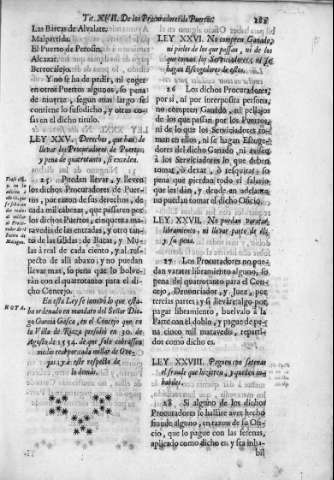 Tit. XVII. De los Procuradores de Puertos. 288
Las Barcas de Alvalate.
Malpartida.
El Puerto de Perosin.
Alcazar.
Berrocalejo.
Y no se ha de pedir, ni coger
en otros Puertos algunos, so pena
de muerte, segun mas largo se
contiene lo susodicho, y otras cosas
en el dicho titulo.
LEY XXV. Derechos, que han de
llevar los Procuradores de Puertos,
y pena de quatrotanto, si exceden.
25 Puedan llevar, y lleven
los dichos Procuradores de Puertos,
por razon de sus derechos, de
cada mil cabeças, que passaren por
los dichos Puertos, cinquenta maravedis
de las entradas, y otro tanto
de las salidas: de Bacas, y Mulas
à real de cada ciento, y al respecto
de alli abaxo; y no puedan
llevar mas, so pena que lo bolveràn
con el quatrotanto para el dicho
Concejo.
NOTA.
En esta Ley se innovò lo que estaba
ordenado en mandato del Señor Diego
Garcia Gasca, en el Concejo que en
la Villa de Riaza presidiò en 30. de
Agosto de 1554. de que solo cobrassen
seis reales por cada millar de Ovejas;
y à este respecto de
lo demàs.
LEY XXVI. No compren Ganado,
ni pieles de los que passan, ni de los
que toman los Serviciadores, ni se
hagan Escogedores de estos.
26 Los dichos Procuradores,
por sì, ni por interposita persona,
no compren Ganado, ni pellejos
de los que passan por los Puertos,
ni de lo que los Serviciadores toman
en ellos, ni se hagan Escogedores
del dicho Ganado, ni
à los Serviciadores lo que deben
tomar, ò dexar, ò resquitar; so
pena que pierdan todo el salario
que les dàn, y desde en adelante
no puedan tomar el dicho Oficio.
LEY XXVII. No puedan variar
libramiento, ni llevar parte de él,
y su pena.
27 Los Procuradores no puedan
variar libramiento alguno, so
pena del quatrotanto para el Concejo,
Denunciador, y Juez, por
tercias partes; y si llevare algo por
pagar libramiento, buelvalo à la
Parte con el doblo, y pague de pena
cinco mil maravedis, repartidos
como dicho es.
LEY XXVIII. Paguen con setenas
el fraude que hicieren, y queden inhabiles.
28 Si alguno de los dichos
Procuradores se hallare aver hecho
fraude alguno, en razon de su Oficio,
que lo pague con las setenas,
aplicado como dicho es: y sea inhabil